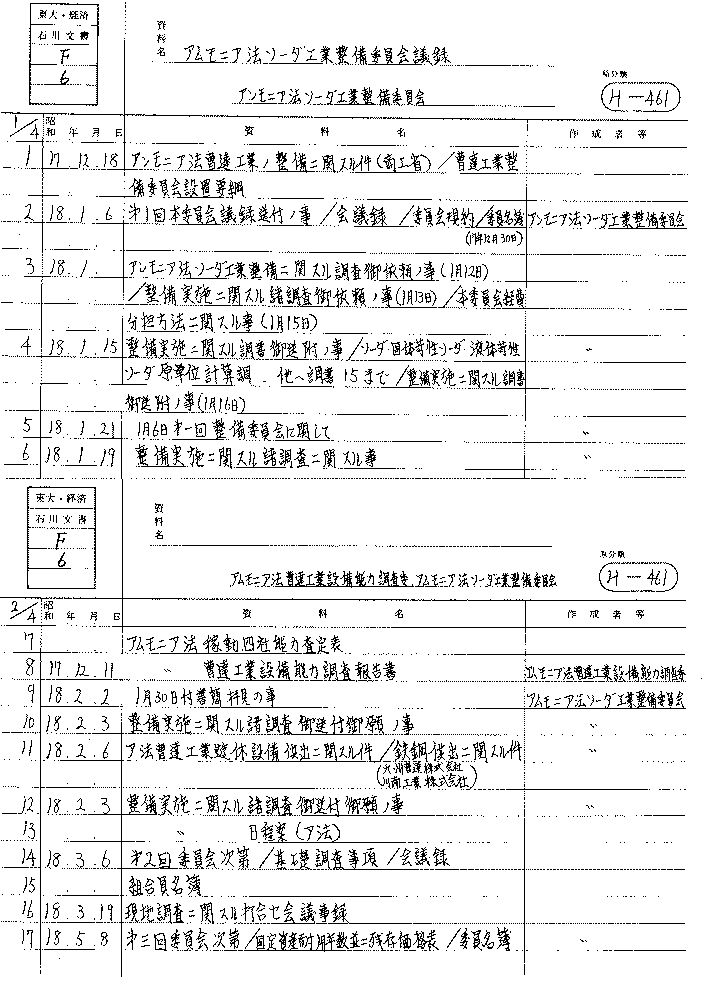 東大・経済
石川文書
F
6
資料名 アムモニア法ソーダ工業整備委員会議録
アンモニア法ソーダ工業整備委員会
H-461
1/4 昭和 年 月 日 資料名 作成者等
1 17.12.18 アンモニア法曹達工業ノ整備ニ関スル件(商工省)/曹達工業整
備委員会設置要綱
2 18.1.6 第1回本委員会議録送付ノ事/会議録/委員会規約/委員名簿 アンモニア法ソーダ工業整備委員会
(17年12月30日)
3 18.1. アンモニア法ソーダ工業整備ニ関スル調査御依頼ノ事(1月12日)
/整備実施ニ関スル諸調査御依頼ノ事(1月13日)/本委員会経費
分担方法ニ関スル事(1月15日)
4 18.1.15 整備実施ニ関スル調書御送附ノ事/ソーダ固体苛性ソーダ液体苛性 〃
ソーダ原単位計算調 他ヘ調書15まで/整備実施ニ関スル調書
御送附ノ事(1月16日)
5 18.1.21 1月6日第一回整備委員会に関して 〃
6 18.1.19 整備実施ニ関スル諸調査ニ関スル事 〃
東大・経済
石川文書
F
6
資料名
アムモニア法曹達工業設備能力調査委、アムモニア法ソーダ工業整備委員会
H-461
2/4 昭和 年 月 日 資料名 作成者等
7 アムモニア法稼動四社能力査定表
8 17.12.11 〃 曹達工業設備能力調査報告書 アムモニア法曹達工業設備能力調査委
9 18.2.2 1月30日付書簡拝見の事 アムモニア法ソーダ工業整備委員会
10 18.2.3 整備実施ニ関スル諸調査御送付御願ノ事 〃
11 18.2.6 ア法曹達工業遊休設備供出ニ関スル件/鉄鋼供出ニ関スル件 〃
(九州曹達株式会社
川南工業株式会社)
12 18.2.3 整備実施ニ関スル諸調査御送付御願ノ事 〃
13 〃 日程案(ア法)
14 18.3.6 第2回委員会次第/基礎調査事項/会議録
15 組合員名簿
16 18.3.19 現地調査ニ関スル打合セ会議事録
17 18.5.8 第三回委員会次第/固定資産耐用年数並ニ残存価格表/委員名簿 〃